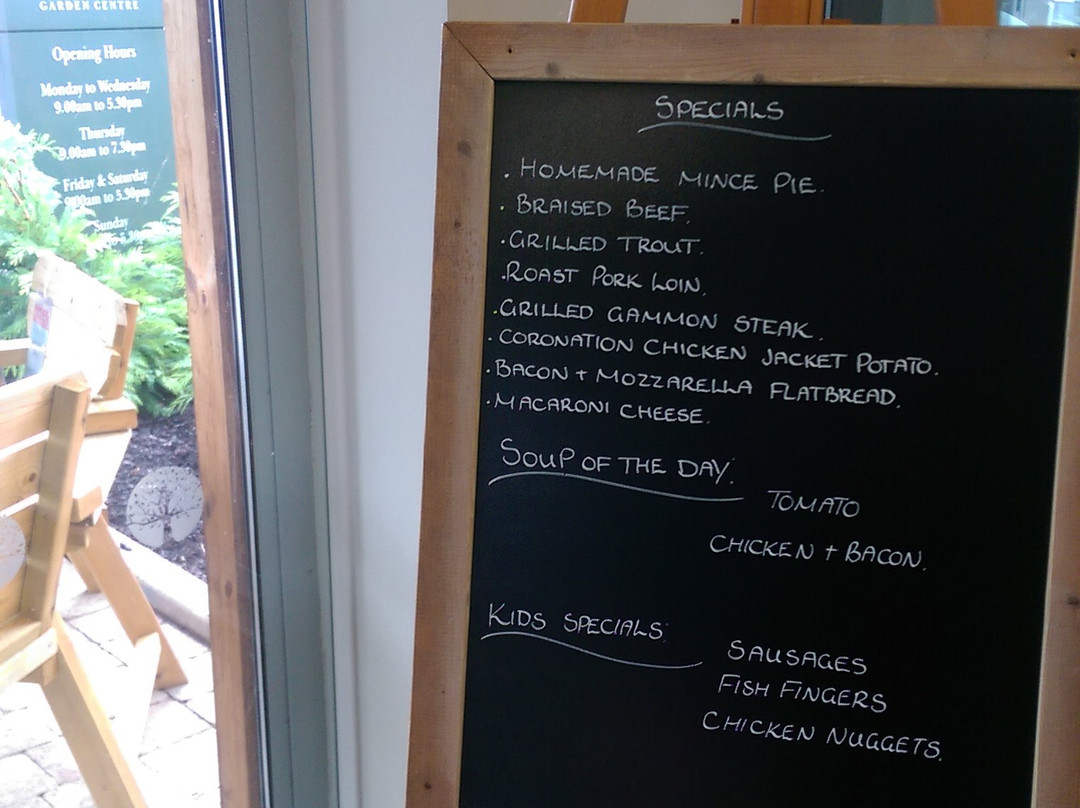 GARDEN CENTRE
Opening Hours
Monday to Wednesday
9.00am to 5.30pm
Thursday
9.00am to 7.30pm
Friday & Saturday
9.00am to 5.30pm
Sunday
SPECIALS
. HOMEMADE MINCE PIE.
. BRAISED BEEF.
. GRILLED TROUT.
. ROAST PORK LOIN.
. GRILLED GAMMON STEAK.
. CORONATION CHICKEN JACKET POTATO.
. BACON + MOZZARELLA FLATBREAD.
. MACARONI CHEESE.
SOUP OF THE DAY:
TOMATO
CHICKEN + BACON.
KIDS SPECIALS:
SAUSAGES
FISH FINGERS
CHICKEN NUGGETS.